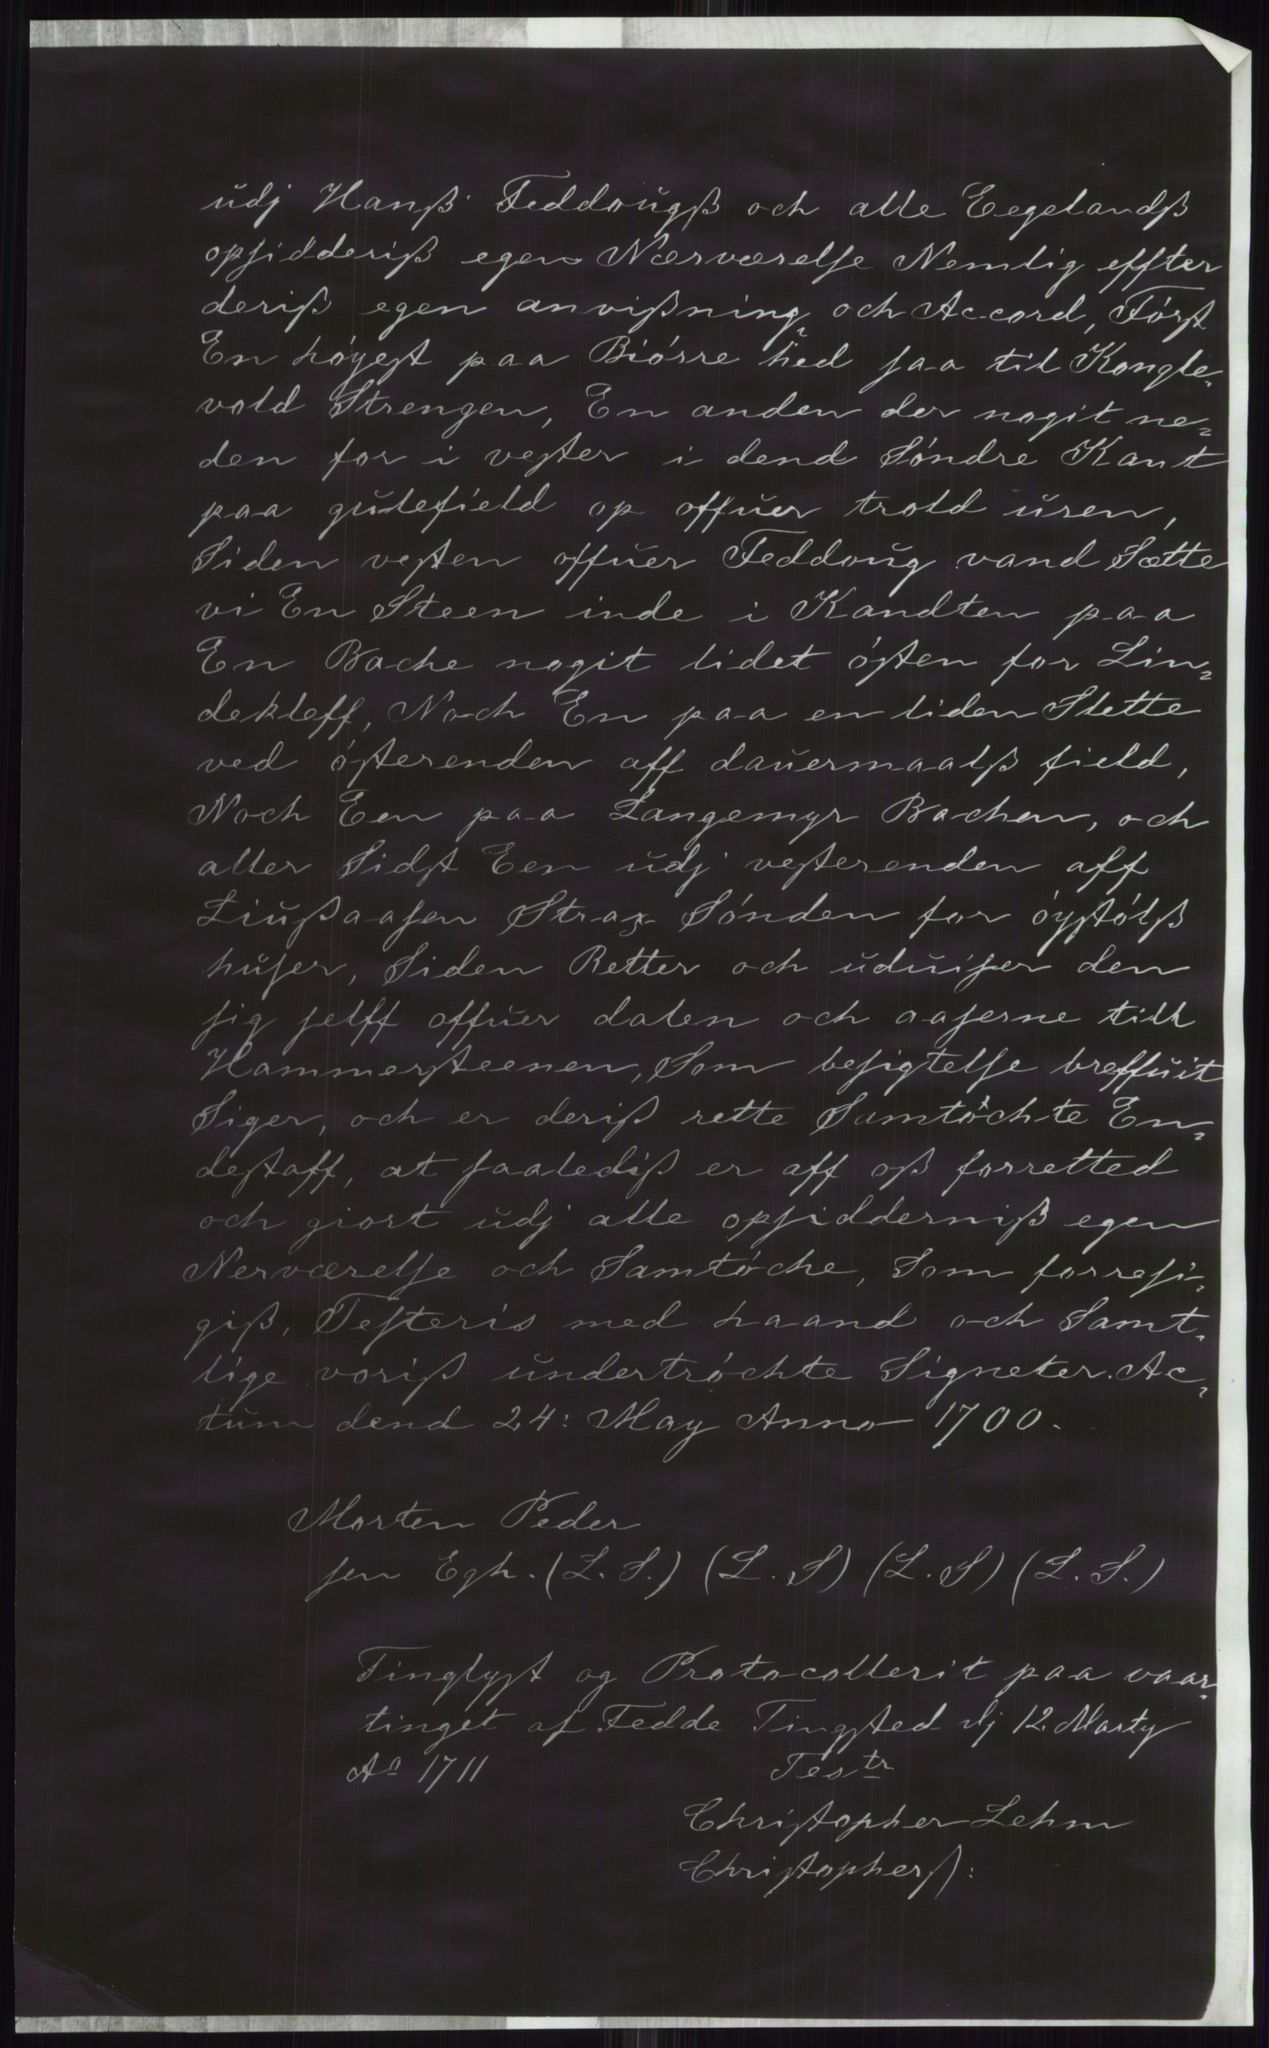 udj Hanß Feddougß och alle Eegelandß
opsidderiß egen Nærværelse Nemlig effter
deriß egen anvißning och Accord, Først
En høyest paa Biørre hed saa til Kongle-
vold Strengen, En anden der nogit ne=
den for i vester i dend Søndre Kant
paa gulefield op offuer trold uren,
Siden vesten offuer Feddoug vand Sætte
vi En Steen inde i Kandten paa
En Bache nogit lidet østen for Lin=
dekleff, Noch En paa en liden Slette
ved østerenden aff dauermaalß field,
Noch Een paa Langemyr Bachen, och
aller Sidst Een udj vesterenden aff
Liußaasen Strax Sønden for øystølß
huser, Siden Retter och uduiser den
sig selff offuer dalen och aaserne till
Hammersteenen, Som besigtelse breffuit
Siger, och er deriß rette Samtøchte En=
destaff, at saalediß er aff oß forretted
och giort udj alle opsidderniß egen
Nerværelse och Samtøche, Som forresi-
giß, Testeris med haand och Samt-
lige voriß undertrøchte Signeter. Ac=
tum dend 24: May Anno 1700.
Morten Peder
sen Egh. (L. S.) (L. S) (L. S) (L. S.)
Tinglyst og Protocollerit paa vaar-
tinget af Fedde Tingsted dj 12 Marty
Ao 1711 Testr
Christopher Lehm
Christopherß: